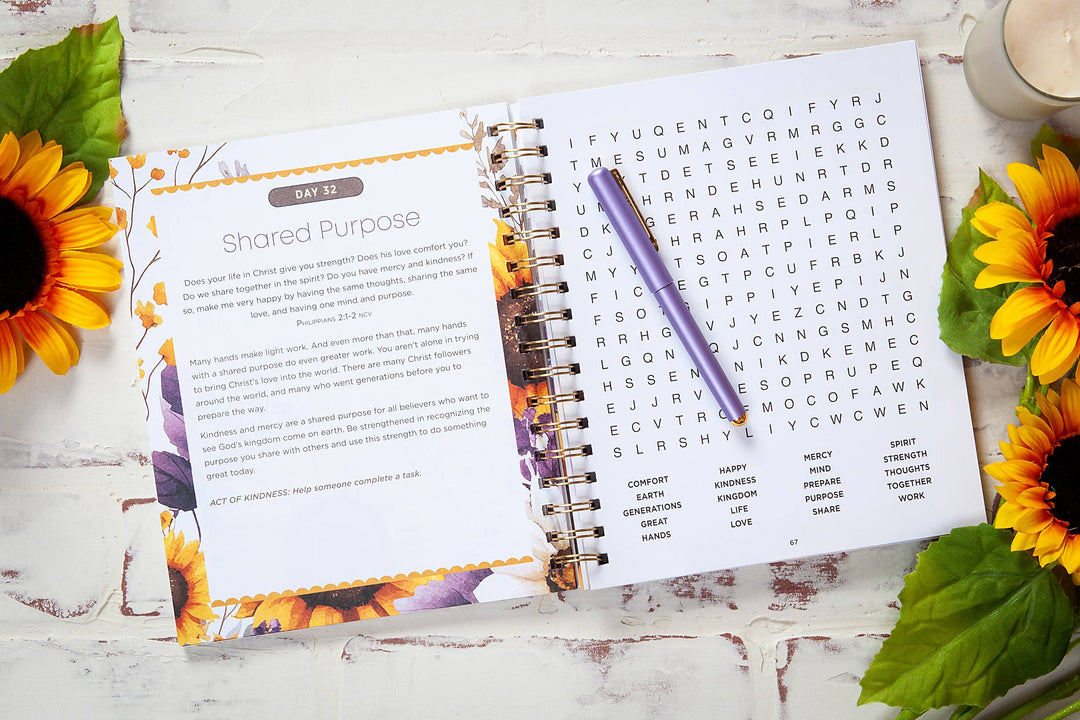 DAY 32
Shared Purpose
Does your life in Christ give you strength? Does his love comfort you?
Do we share together in the spirit? Do you have mercy and kindness? If
so, make me very happy by having the same thoughts, sharing the same
love, and having one mind and purpose.
Philippians 2:1-2 NCV
Many hands make light work. And even more than that, many hands
with a shared purpose do even greater work. You aren't alone in trying
to bring Christ's love into the world. There are many Christ followers
around the world, and many who went generations before you to
prepare the way.
Kindness and mercy are a shared purpose for all believers who want to
see God's kingdom come on earth. Be strengthened in recognizing the
purpose you share with others and use this strength to do something
great today.
ACT OF KINDNESS: Help someone complete a task.
I F Y U Q E N T C Q I F Y R J
T M E S U M A G V R M R G G C
Y T D E T S E E I E K K D
U M H R N D E H U N R T D R
D K G E R A H S E D A R M S
C J H R A H R P L P Q I P
M Y Y T S O A T P I E R L P
F I C E G T P C U F R B K J
F S O G I P P I Y E P I J N
R R H G V J Y E Z C N D T G
L G Q N Q J C N N G S M H C
H S S E N N I K D K E M E C
E J J R V E S O P R U P E Q
E C V T R O F M O C O F A W K
S L R S H Y L I Y C W C W E N
COMFORT
EARTH
GENERATIONS
GREAT
HANDS
HAPPY
KINDNESS
KINGDOM
LIFE
LOVE
MERCY
MIND
PREPARE
PURPOSE
SHARE
SPIRIT
STRENGTH
THOUGHTS
TOGETHER
WORK
67